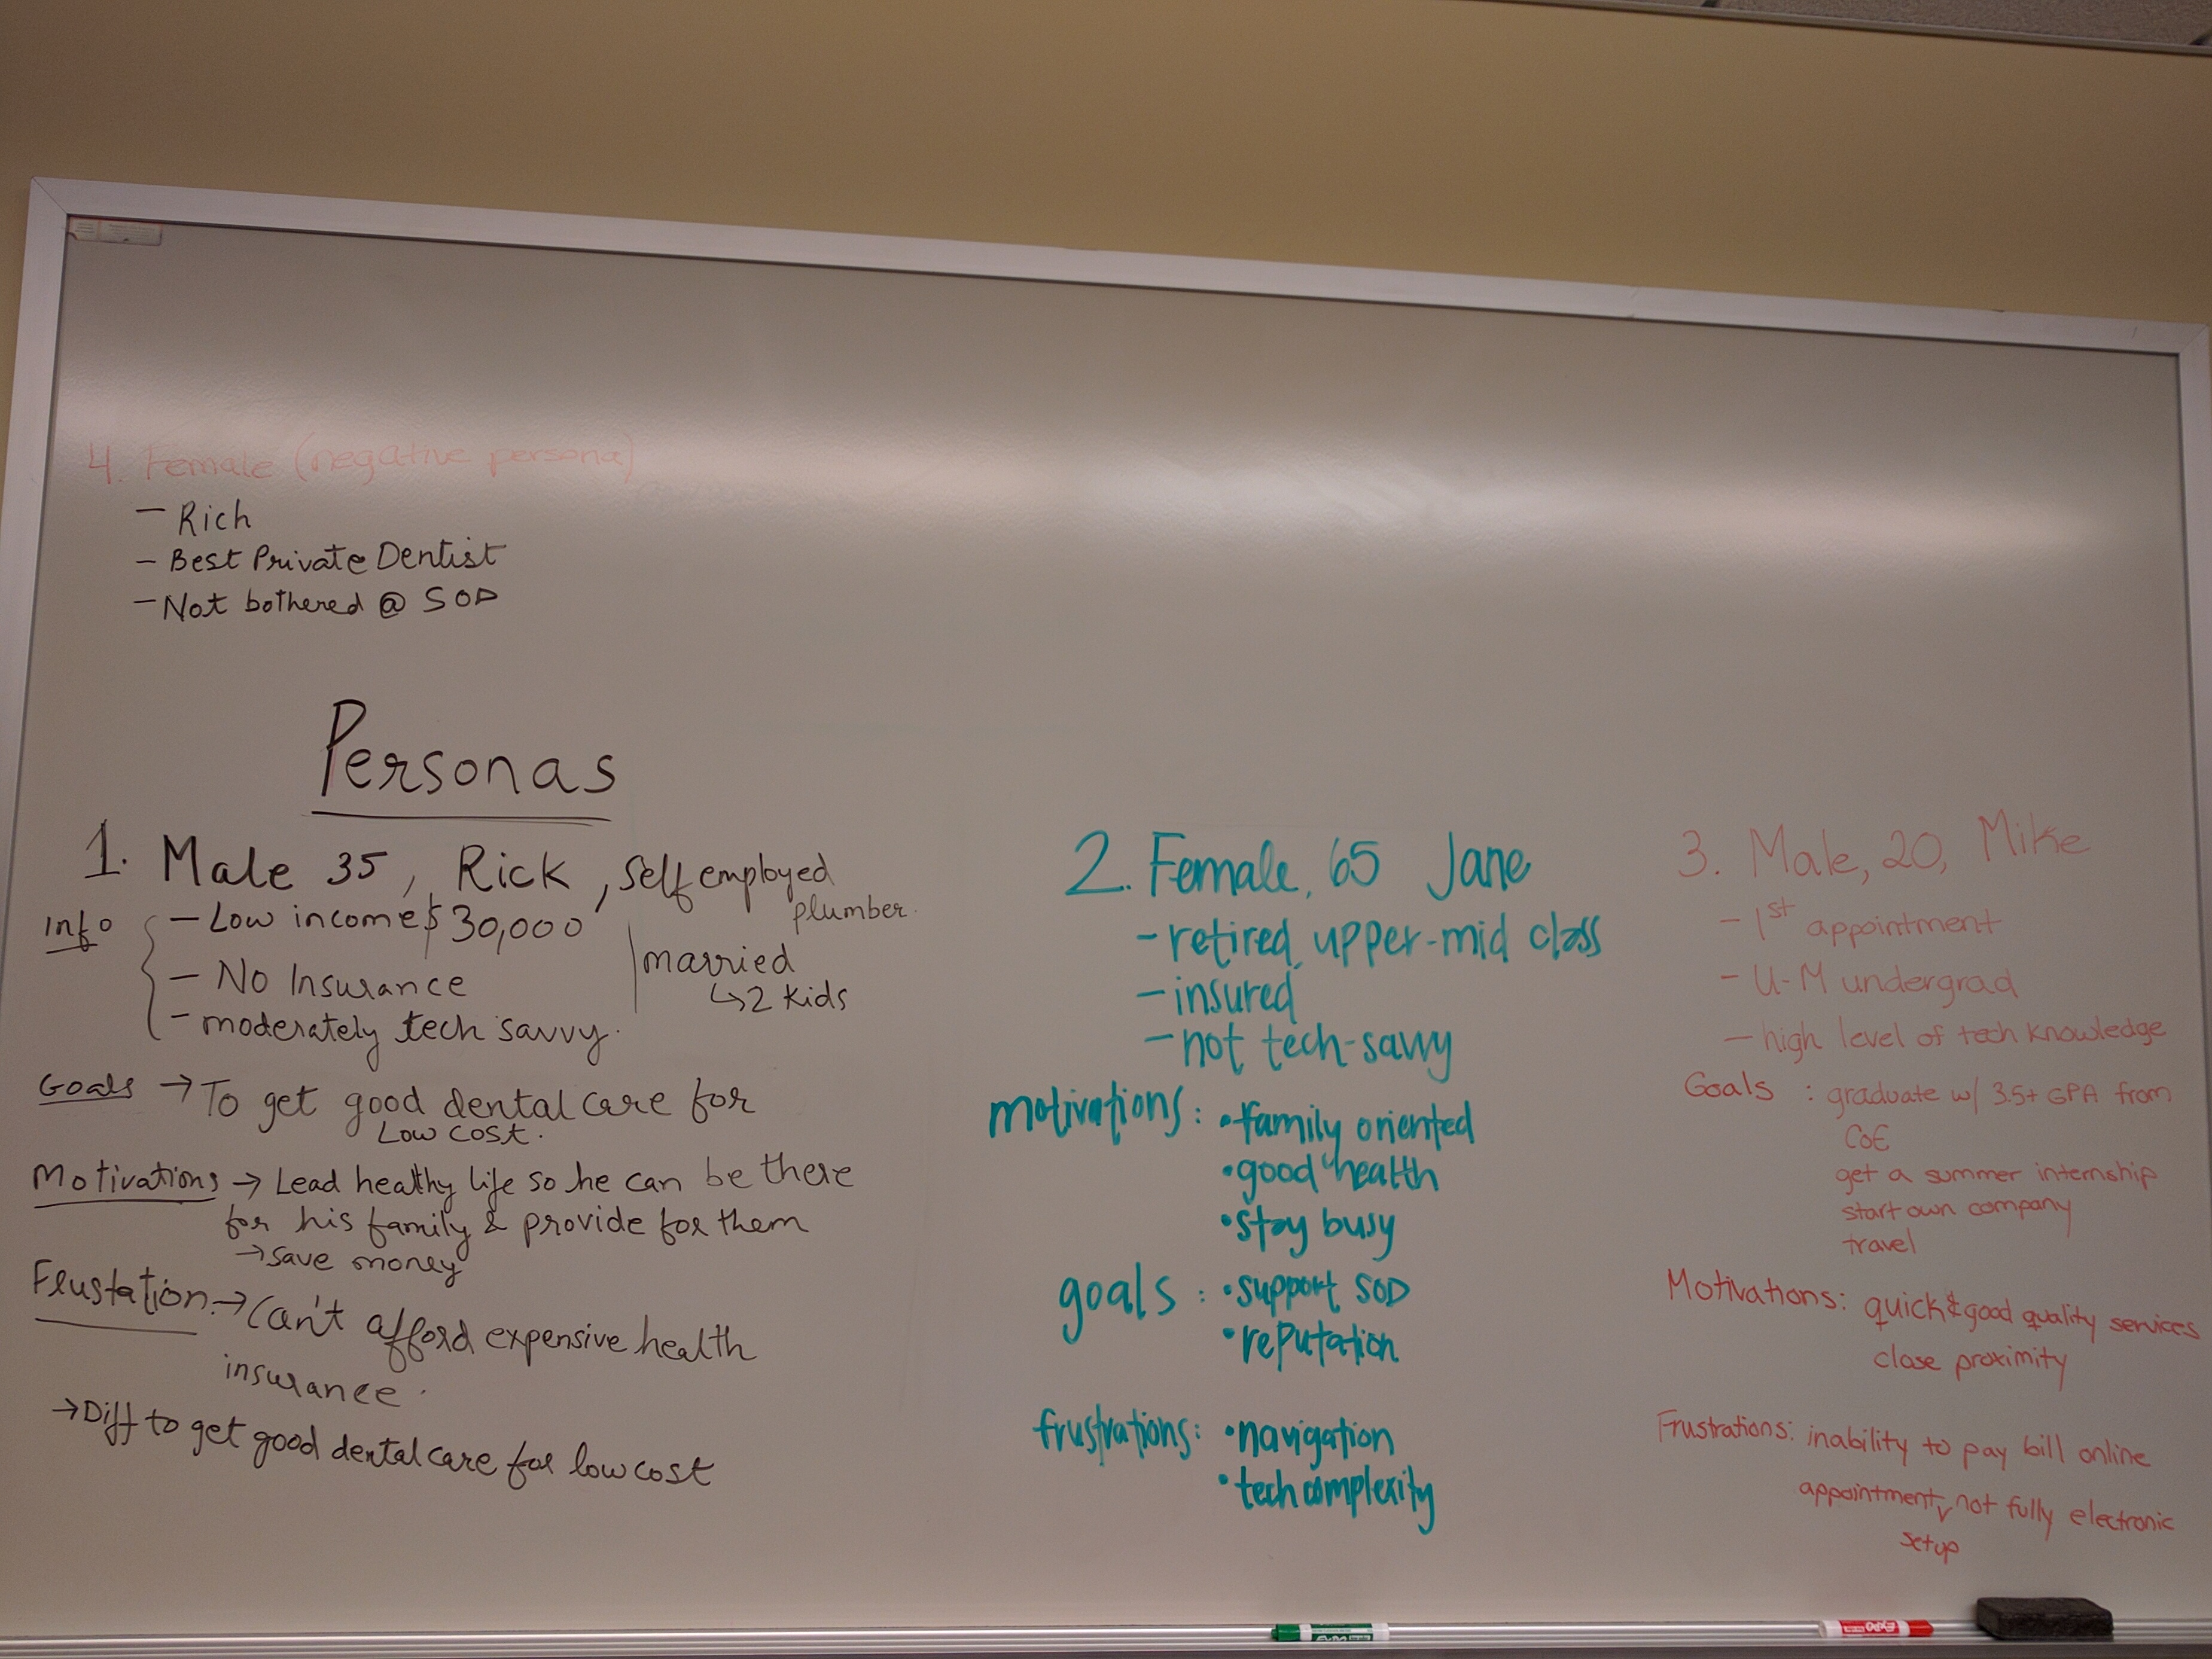 4. Female (negative persona)
– Rich
– Best Private Dentist
– Not bothered @ SOD
Personas
1. Male 35, Rick, Self employed
plumber.
Info
– Low income $30,000
– No Insurance
– moderately tech savvy.
married
↳ 2 kids
Goals → To get good dental care for
Low cost.
Motivations → Lead healthy life so he can be there
for his family & provide for them
→ save money
Frustation → Can't afford expensive health
insurance.
→ Diff to get good dental care for low cost
2. Female, 65 Jane
– retired, upper-mid class
– insured
– not tech-savvy
motivations: • family oriented
• good health
• stay busy
goals: • support SOD
• reputation
frustrations: • navigation
• tech complexity
3. Male, 20, Mike
– 1st appointment
– U-M undergrad
– high level of tech knowledge
Goals: graduate w/ 3.5+ GPA from
CoE
get a summer internship
start own company
travel
Motivations: quick & good quality services
close proximity
Frustrations: inability to pay bill online
appointment not fully electronic
setup
EXPO
EXPO